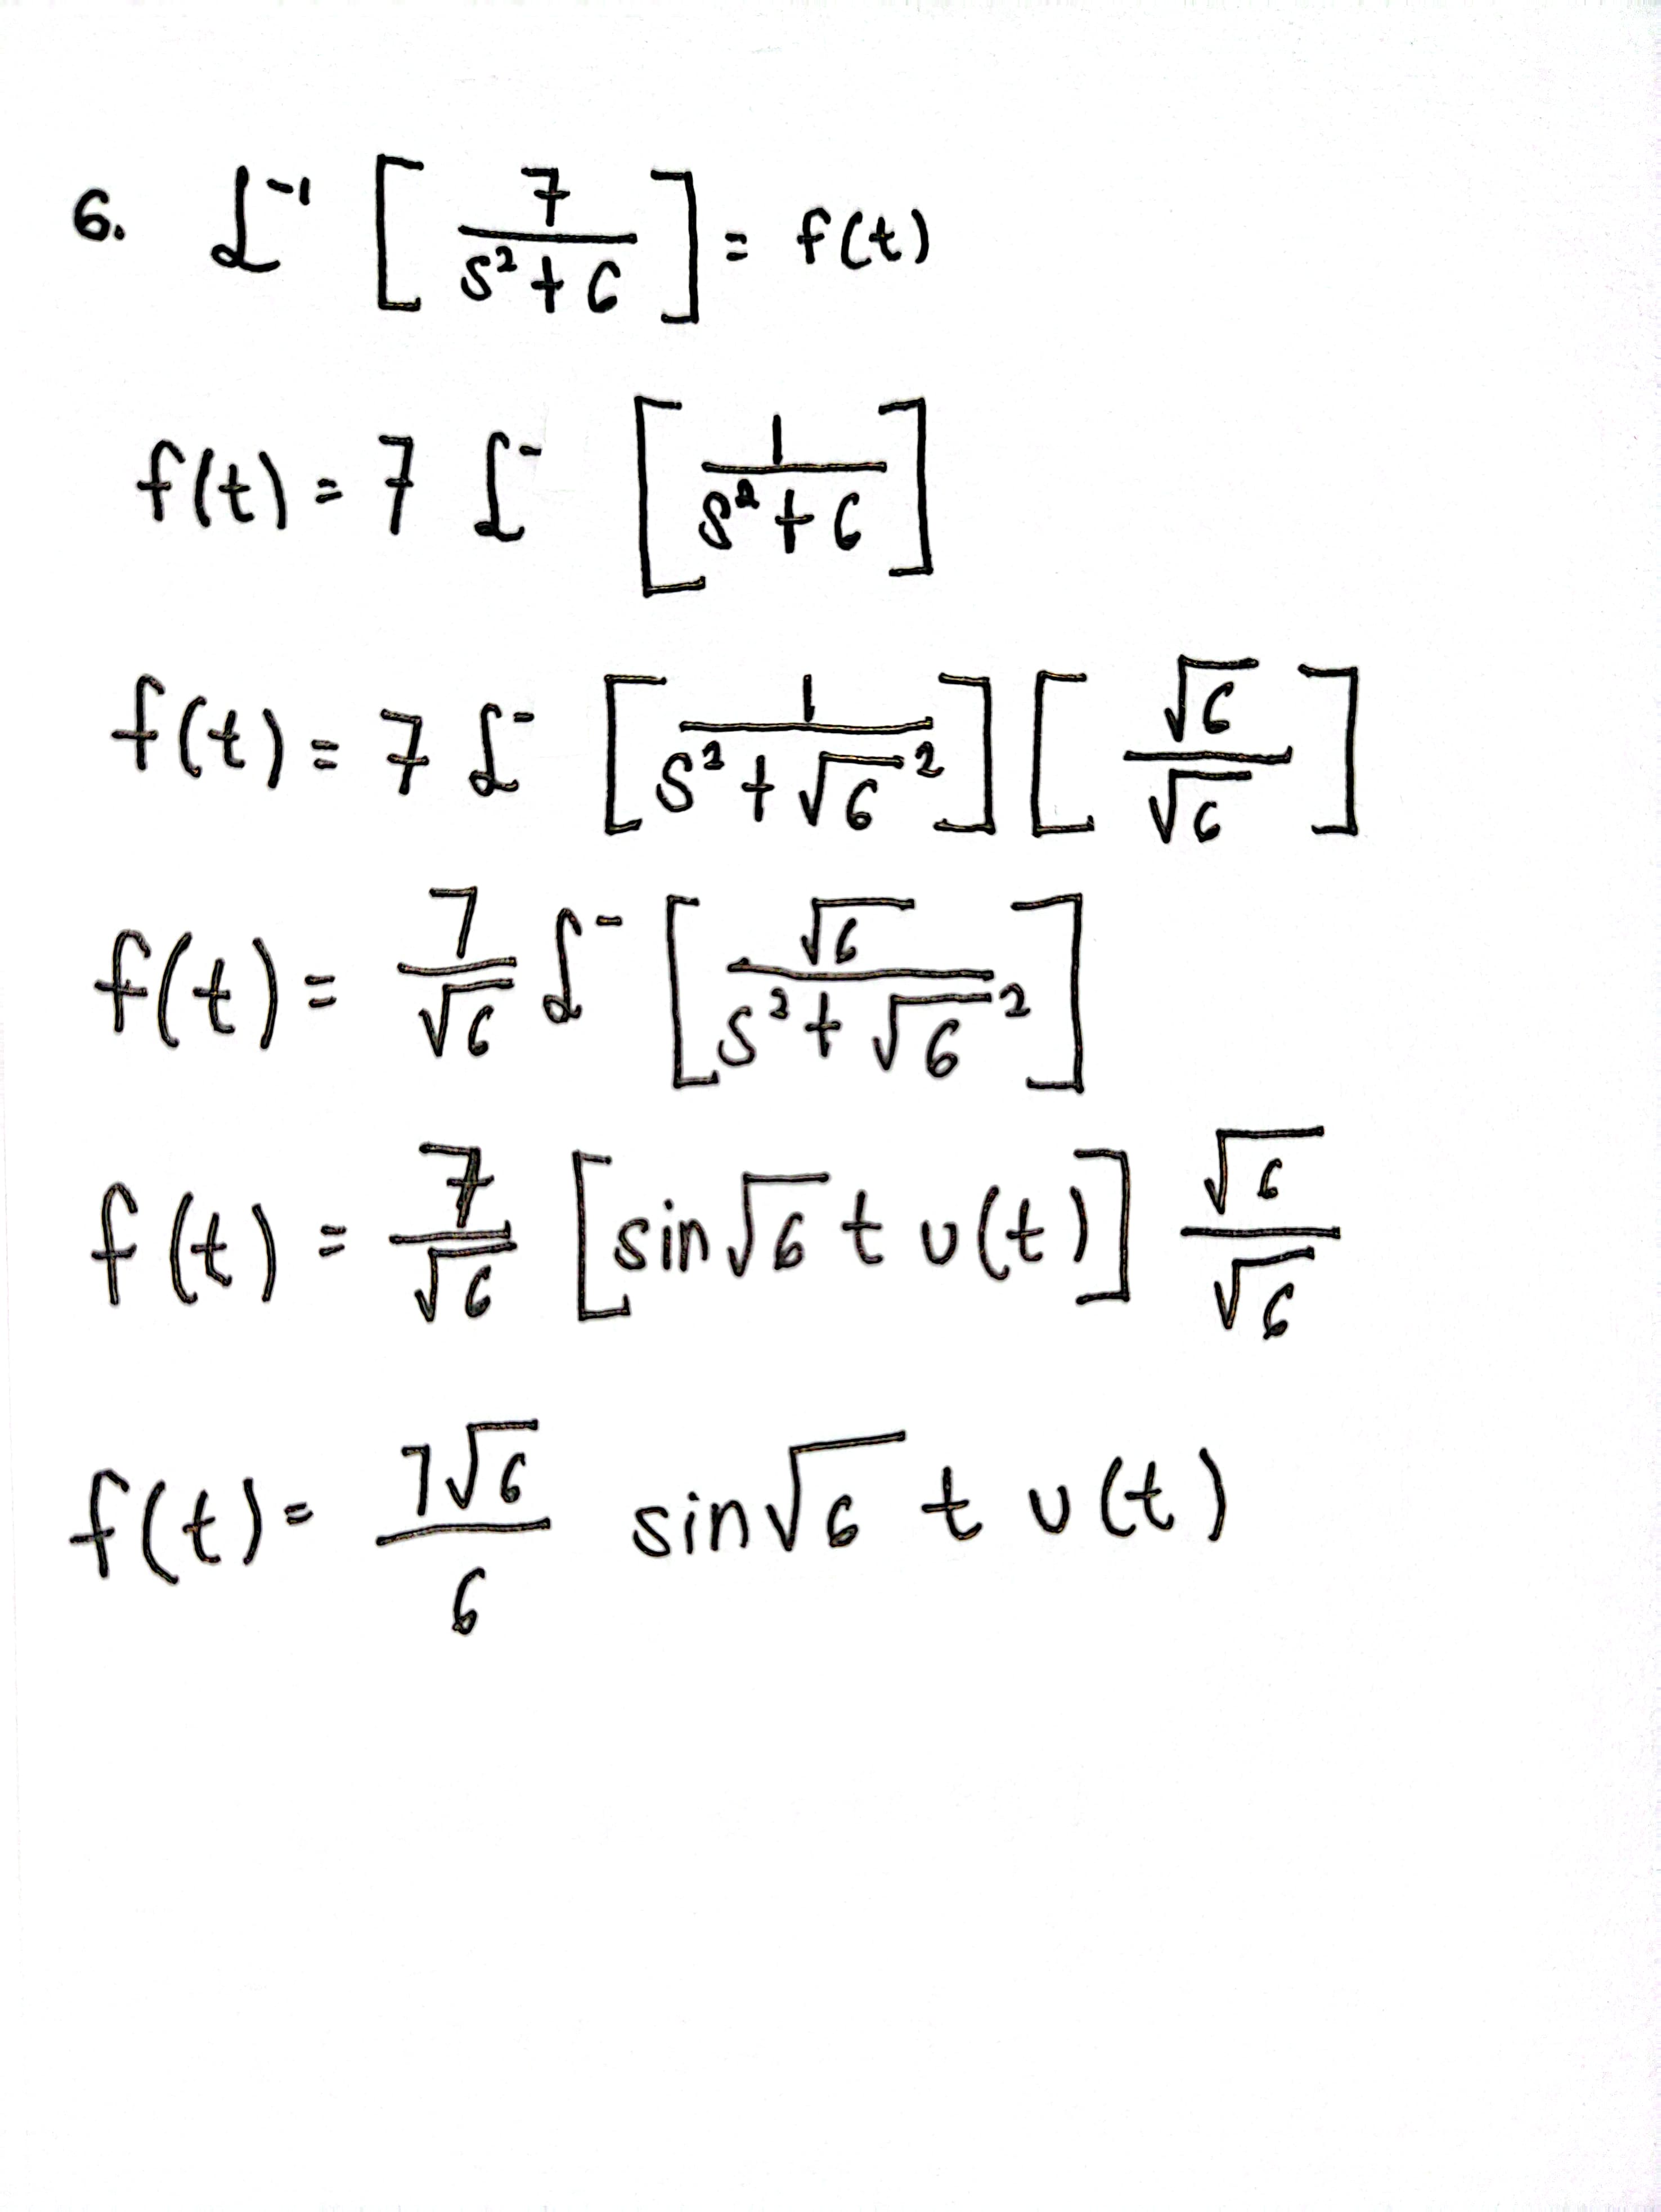 6. ℒ⁻¹ [ 7 / (s² + 6) ] = f(t)
f(t) = 7 ℒ⁻ [ 1 / (s² + 6) ]
f(t) = 7 ℒ⁻ [ 1 / (s² + √6²) ] [ √6 / √6 ]
f(t) = 7/√6 ℒ⁻ [ √6 / (s² + √6²) ]
f(t) = 7/√6 [ sin√6 t u(t) ] √6/√6
f(t) = 7√6/6 sin√6 t u(t)